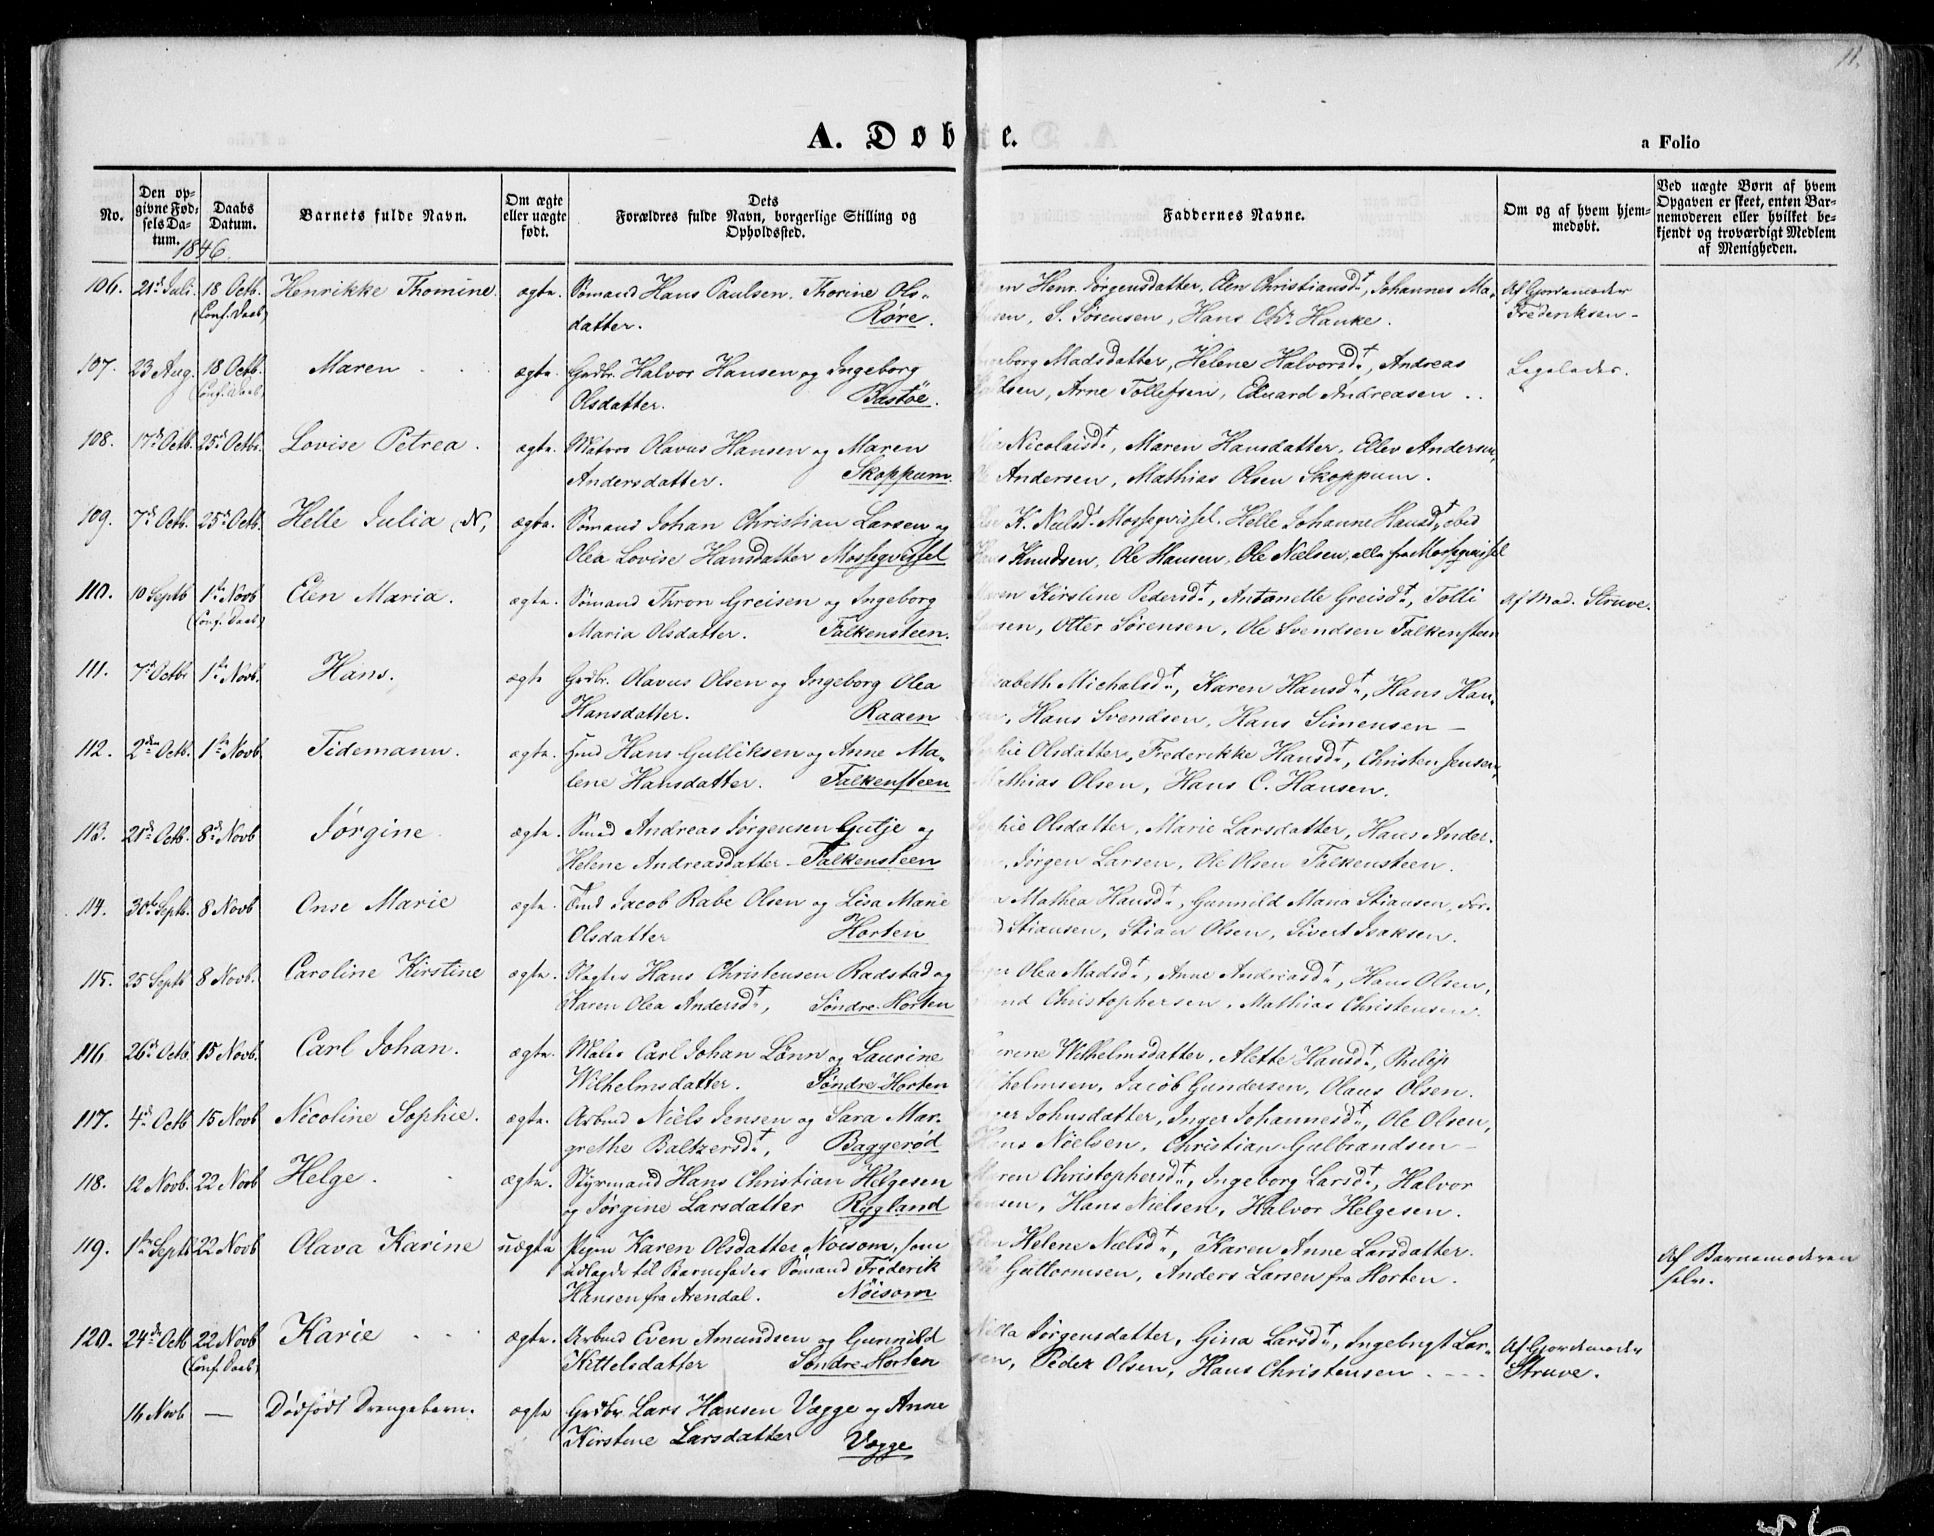 11.
A. Døbte.
a Folio
No.
Den opgivne Fødselsdatum.
Daabs Datum.
Barnets fulde Navn.
Om ægte eller uægte født.
Dets Forældres fulde Navn, borgerlige Stilling og Opholdssted.
Faddernes Navne.
Om og af hvem hjemmedøbt.
Ved uægte Børn af hvem Opgaven er skeet, enten Barnemoderen eller hvilket bekjendt og troværdigt Medlem af Menigheden.
1846.
106. 21de Juli. 18 Octb. Henrikke Thomine. ægte. Sømand Hans Paulsen. Thorine Ols- Henr. Jørgensdatter, Elen Christiansdt, Johannes Ma- Af Gjordemoder
(Conf. Daab) datter. Røre. S. Sørensen, Hans Chr. Hanke. Frederiksen -
107. 23 Aug. 18 Octb. Maren ægte. Grdbr. Halvor Hansen og Ingeborg Madsdatter, Helene Halvorsdt, Andreas
(Conf. Daab) Olsdatter. Bastøe. Arne Tollefsen, Eduard Andreasen ..
108. 17de Octb. 25de Octbr. Lovise Petrea. ægte. Matros Olavus Hansen og Maren Nicolaisdt, Maren Hansdatter, Elev Andersen,
Andersdatter. Skoppum. Andersen, Mathias Olsen Skoppum.
109. 7de Octb. 25de Octb. Helle Julia (N, ægte. Sømand Johan Christian Larsen og K. Nielsdt Mossegvissel. Helle Johanne Hansdt ibid
Olea Lovise Hansdatter Mossegvissel Knudsen, Ole Hansen, Ole Nielsen, alle fra Mossegvissel
110. 10 Septb 1ste Novb Elen Maria. ægte. Sømand Thron Greisen og Ingeborg Maren Kirstine Pedersdt, Antonette Greisdt, Tolli Af Mad. Struve.
(Conf. Daab) Maria Olsdatter. Falkensteen. Otter Sørensen, Ole Svendsen Falkensteen
111. 7de Octbr 1ste Novb. Hans. ægte Grdbr. Olavus Olsen og Ingeborg Olea Elisabeth Michalsdt, Karen Hansdt, Hans Han-
Hansdatter. Raaen Hans Svendsen, Hans Simensen -
112. 2den Octb. 1ste Novb. Tidemann. ægte. Hmd Hans Gulliksen og Anne Ma- Sophie Olsdatter, Frederikke Hansdt, Christen Jensen,
lene Hansdatter. Falkensteen Mathias Olsen, Hans C. Hansen.
113. 21de Octb. 8de Novb Jørgine ægte. Smed Andreas Jørgensen Gutje og Sophie Olsdatter, Marie Larsdatter, Hans Ander-
Helene Andreasdatter - Falkensteen Jørgen Larsen, Ole Olsen Falkensteen.
114. 30te Septb. 8 Novb Onse Marie ægte. Jacob Rabe Olsen og Lisa Marie Mathea Hansdt, Gunnild Maria Stiansen, For-
Olsdatter Horten Stiansen, Stian Olsen, Sivert Isaksen.
115. 25 Septb 8 Novb. Caroline Kirstine ægte. Slagter Hans Christensen Radstad og Olea Madsdt, Anne Andreasdt, Hans Olsen,
Karen Olea Andersdt, Søndre-Horten Christophersen, Mathias Christensen.
116 26de Octb. 15 Novb. Carl Johan. ægte. Maler Carl Johan Lønn og Laurine Wilhelmsdatter, Alette Hansdt, Philip
Wilhelmsdatter. Søndre-Horten Jacob Gundersen, Olaus Olsen.
117. 4de Octb 15 Novb Nicoline Sophie. ægte. Arbmd Niels Jensen og Sara Mar- Johnsdatter, Inger Johannesdt, Ole Olsen,
grethe Baltzersdt, Baggerød Hans Nielsen, Christian Gulbrandsen -
118. 12 Novb. 22 Novb Helge. ægte. Styrmand Hans Christian Helgesen Maren Christophersdt, Ingeborg Larsdt, Halvor
og Jørgine Larsdatter Rygland Hans Nielsen, Halvor Helgesen.
119. 1ste Septb 22 Novb Olava Karine uægte Pigen Karen Olsdatter Nøisom, som Helene Nielsdt, Karen Anne Larsdatter. Af Barnemoderen
udlagde til Barnefader Sømand Frederik Guttormsen, Anders Larsen fra Horten. selv.
Hansen fra Arendal. Nøisom
120. 24de Octb 22 Novb Karie ægte. Arbmd Even Amundsen og Gunnild Jørgensdatter, Gina Larsdt, Ingebrigt Lar- Af Gjordemoder
(Conf. Daab) Kittelsdatter Søndre-Horten sen, Peder Olsen, Hans Christensen Struve.
14 Novb — Dødfødt Drengebarn. ægte Grdbr Lars Hansen Vegge og Anne
Kirstine Larsdatter Vegge